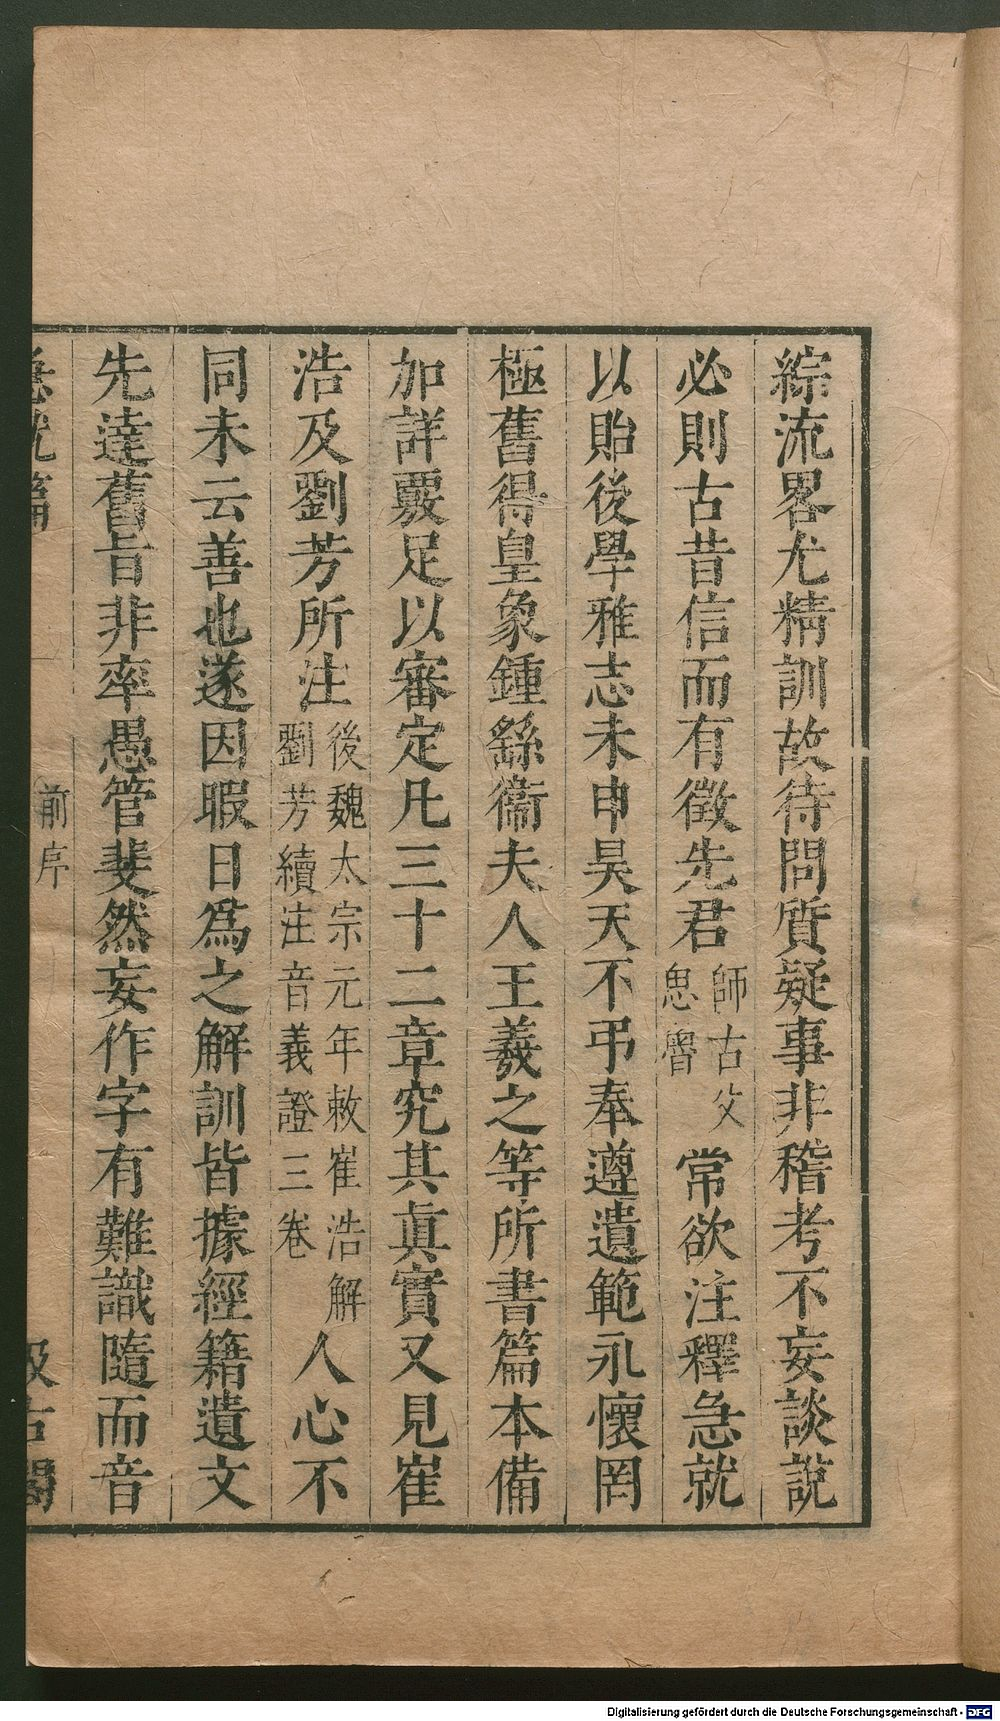 綜流畧尤精訓故待問質疑事非稽考不妄談說
必則古昔信而有徵先君師古父思魯常欲注釋急就
以貽後學雅志未申昊天不弔奉遵遺範永懷罔
極舊得皇象鍾繇衞夫人王羲之等所書篇本備
加詳覈足以審定凡三十二章究其眞實又見崔
浩及劉芳所注後魏太宗元年敕崔浩解劉芳續注音義證三卷人心不
同未云善也遂因暇日爲之解訓皆據經籍遺文
先達舊旨非率愚管斐然妄作字有難識隨而音
急就篇 前序 汲古閣
Digitalisierung gefördert durch die Deutsche Forschungsgemeinschaft - DFG